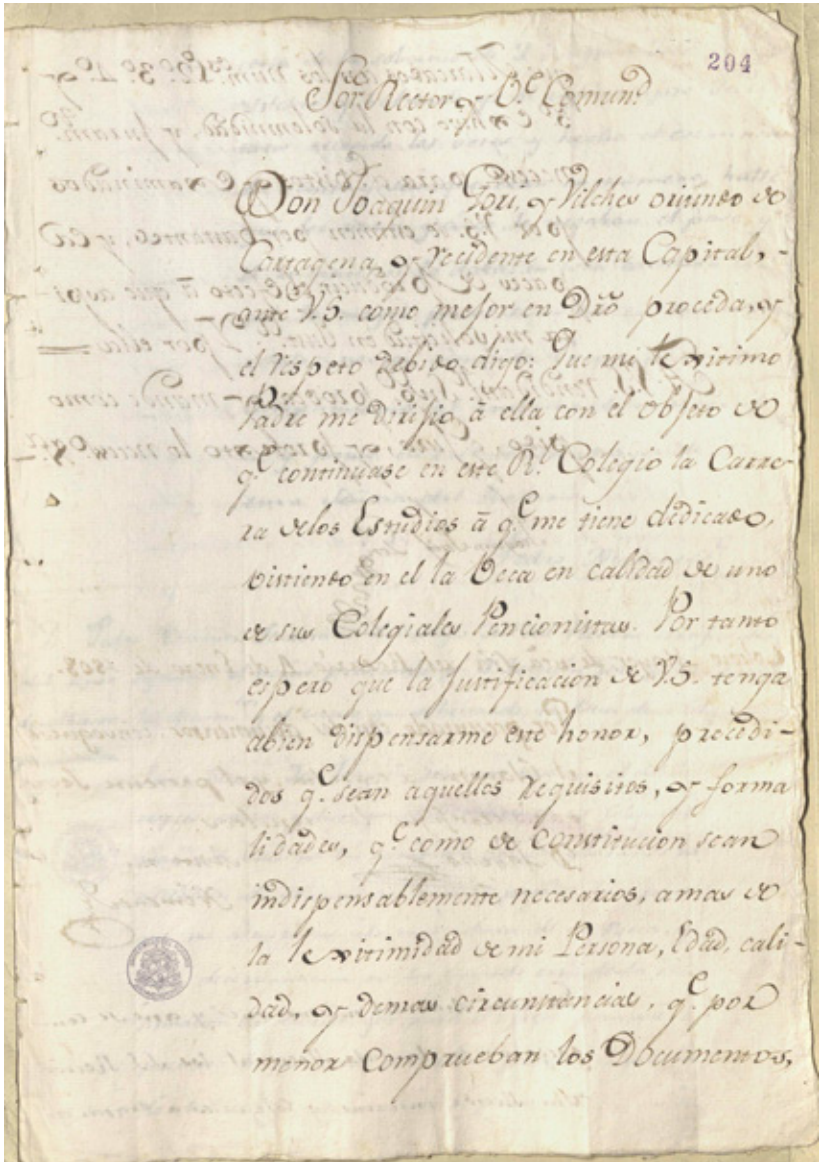 204
Sor. Rector, y Ve. Comund.
Don Joaquin Gori, y Vilches oriundo de
Cartagena, y recidente en esta Capital, -
ante V.S. como mejor en Dro. proceda, y
el respeto debido digo: Que mi lexitimo
Padre me dirijio â ella con el objeto de
qe. continuase en este Rl. Colegio la Carre-
ra delos Estudios â qe. me tiene dedicado,
vistiendo en el la Beca en calidad de uno
de sus Colegiales Pencionistas. Por tanto
espero que la justificacion de V.S. tenga
abien dispensarme este honor, precedi-
dos qe. sean aquellos requisitos, y forma
lidades, qe. como de constitucion sean
indispensablemente necesarios, amas de
la lexitimidad de mi Persona, Edad, cali-
dad, y demas circunstancias, qe. por
menor comprueban los Documentos,